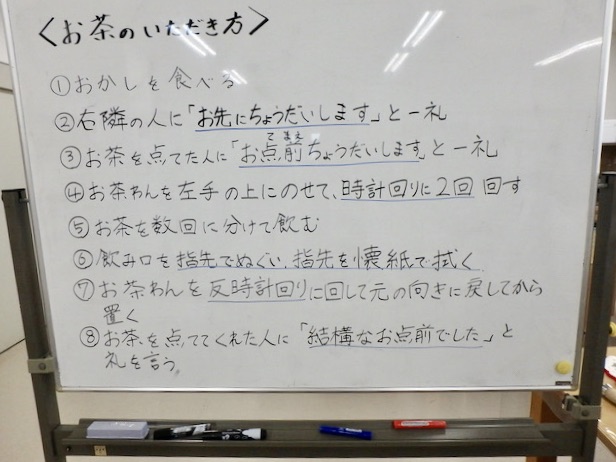 〈お茶のいただき方〉
①おかしを食べる
②右隣の人に「お先にちょうだいします」と一礼
③お茶を点てた人に「お点前ちょうだいします」と一礼
てまえ
④お茶わんを左手の上にのせて、時計回りに2回 回す
⑤お茶を数回に分けて飲む
⑥飲み口を指先でぬぐい、指先を懐紙で拭く
⑦お茶わんを反時計回りに回して元の向きに戻してから
置く
⑧お茶を点ててくれた人に「結構なお点前でした」と
礼を言う。